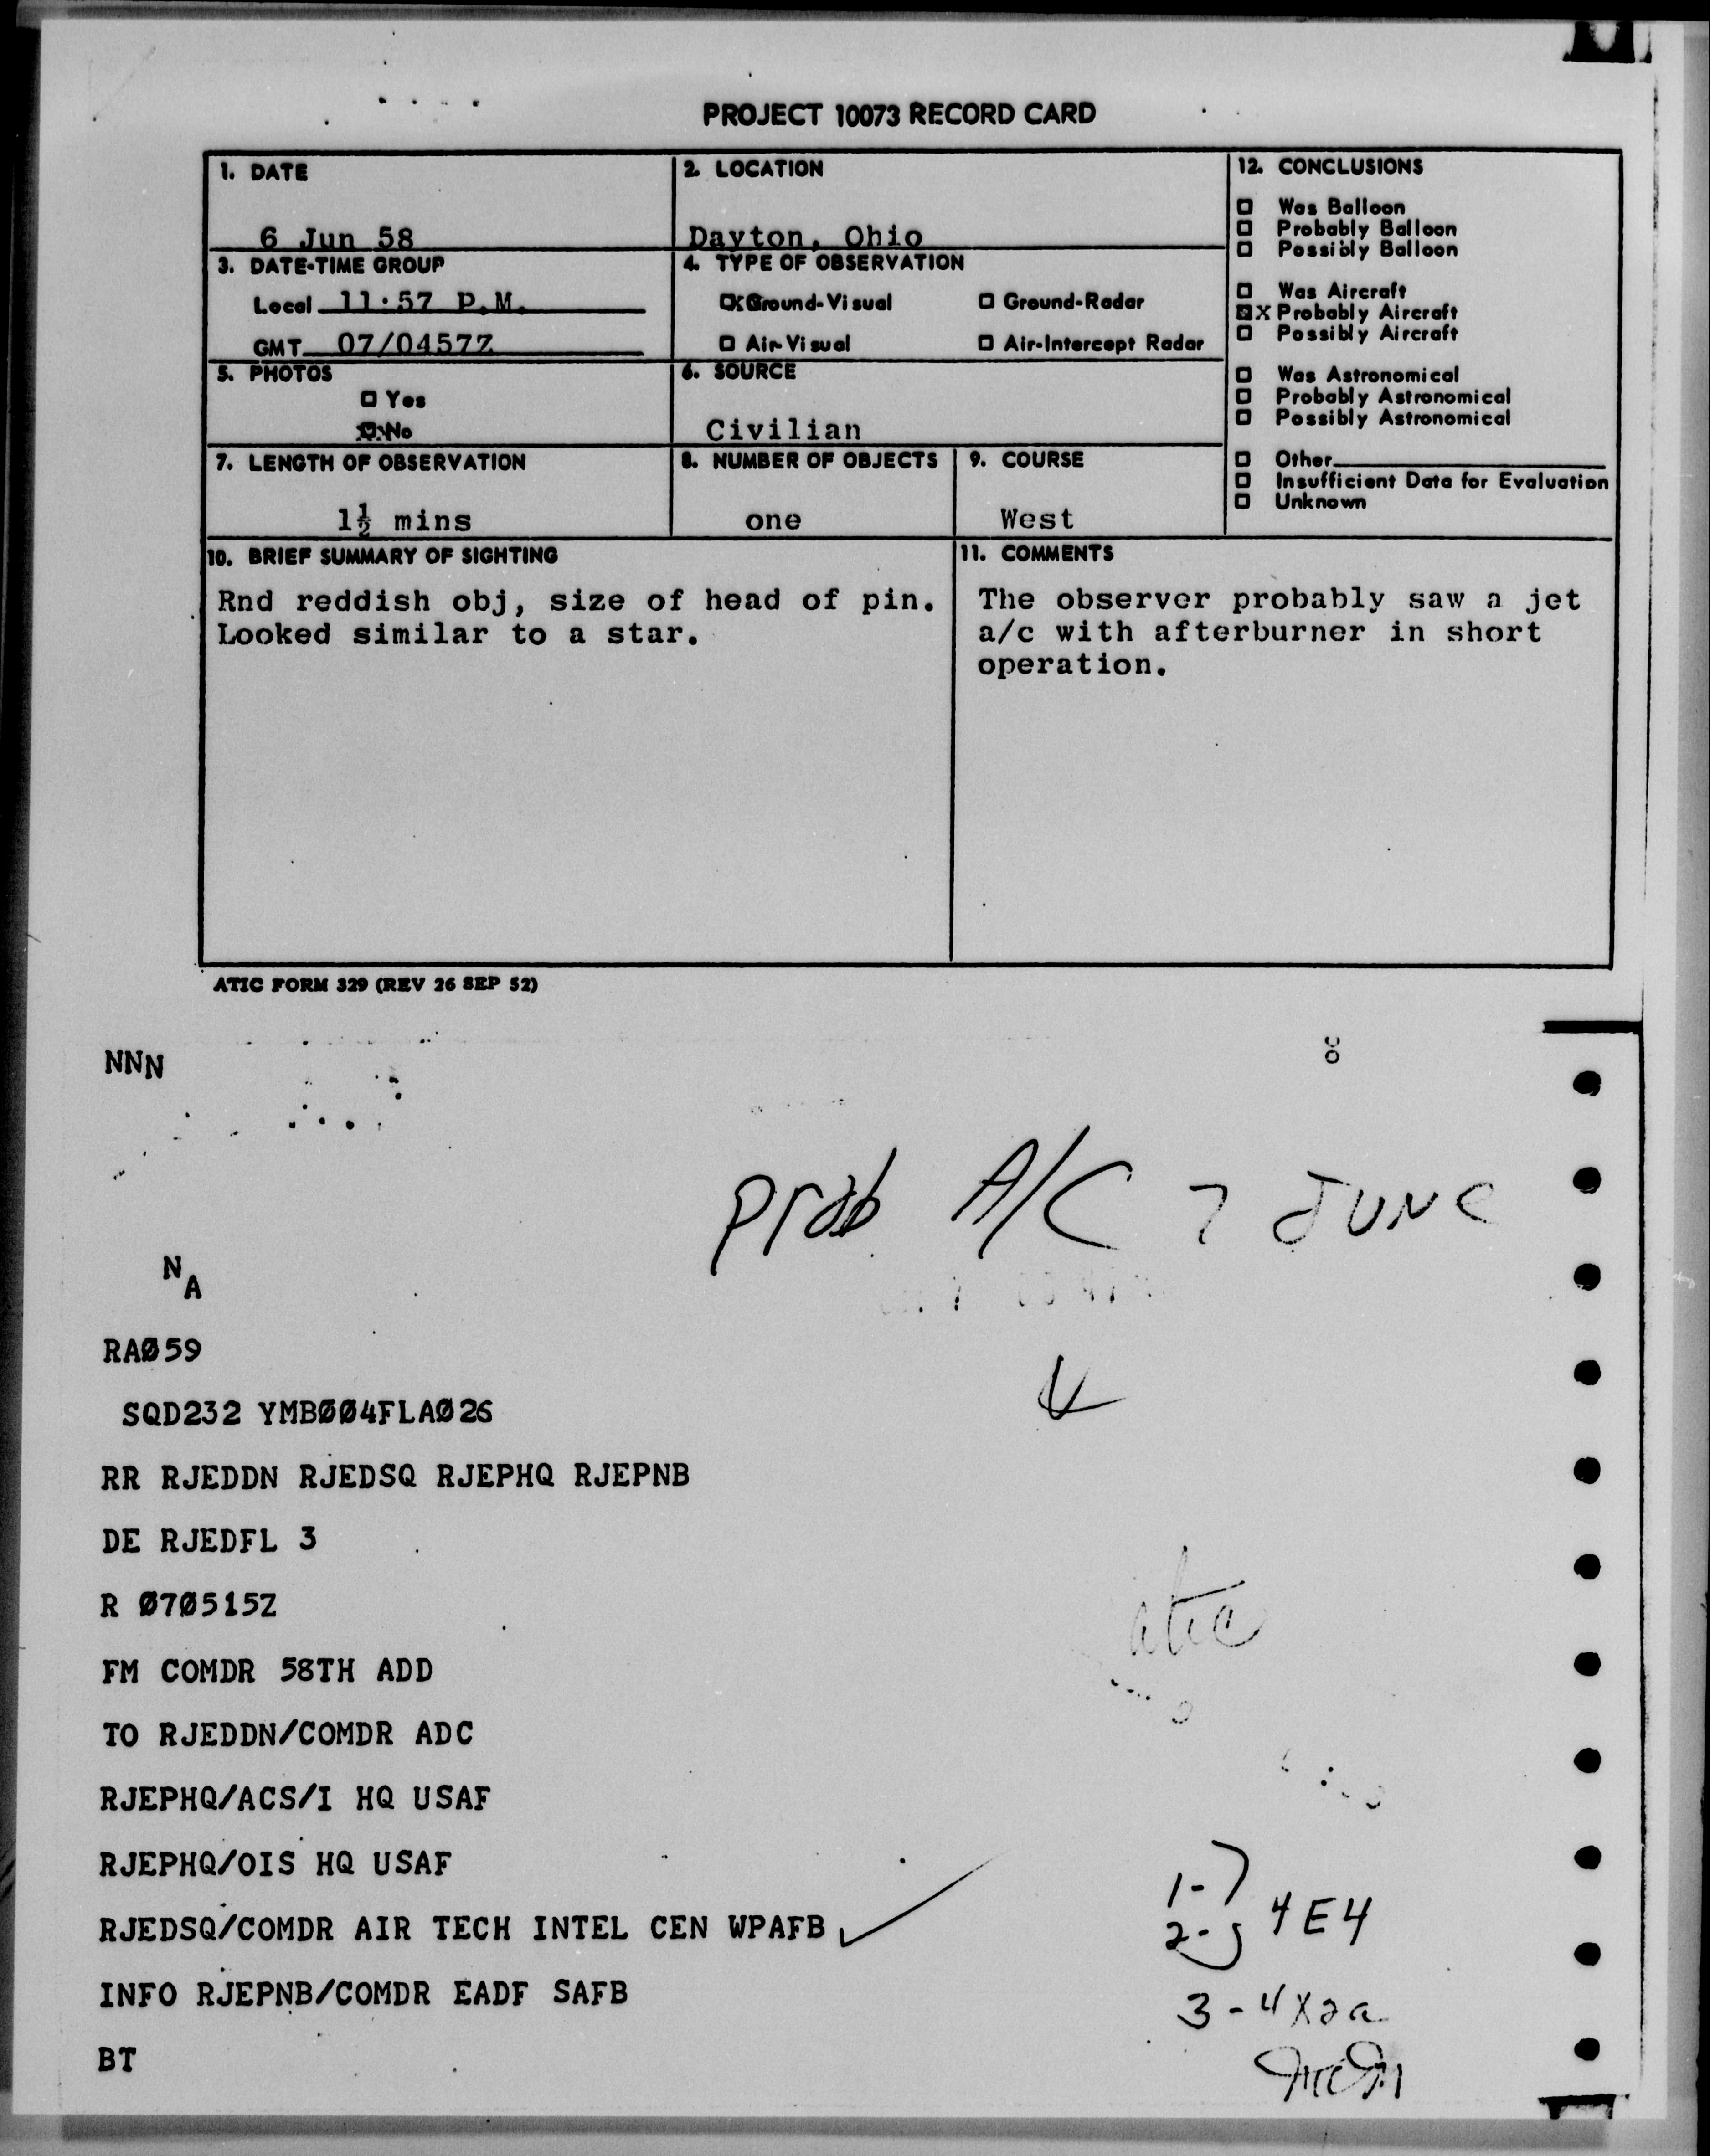 PROJECT 10073 RECORD CARD
1. DATE
6 Jun 58
2. LOCATION
Dayton, Ohio
3. DATE-TIME GROUP
Local 11:57 P.M.
GMT 07/0457Z
4. TYPE OF OBSERVATION
☒ Ground-Visual □ Ground-Radar
□ Air-Visual □ Air-Intercept Radar
5. PHOTOS
□ Yes
☒ No
6. SOURCE
Civilian
7. LENGTH OF OBSERVATION
1½ mins
8. NUMBER OF OBJECTS
one
9. COURSE
West
12. CONCLUSIONS
□ Was Balloon
□ Probably Balloon
□ Possibly Balloon
□ Was Aircraft
☒ X Probably Aircraft
□ Possibly Aircraft
□ Was Astronomical
□ Probably Astronomical
□ Possibly Astronomical
□ Other
□ Insufficient Data for Evaluation
□ Unknown
10. BRIEF SUMMARY OF SIGHTING
Rnd reddish obj, size of head of pin.
Looked similar to a star.
11. COMMENTS
The observer probably saw a jet
a/c with afterburner in short
operation.
ATIC FORM 329 (REV 26 SEP 52)
NNN
prob A/C 7 JUNE
N
A
RAØ59
SQD232 YMBØØ4FLAØ26
RR RJEDDN RJEDSQ RJEPHQ RJEPNB
DE RJEDFL 3
R Ø7Ø515Z
atic
FM COMDR 58TH ADD
TO RJEDDN/COMDR ADC
RJEPHQ/ACS/I HQ USAF
RJEPHQ/OIS HQ USAF
RJEDSQ/COMDR AIR TECH INTEL CEN WPAFB
1-
2- 4E4
INFO RJEPNB/COMDR EADF SAFB
3-4X2a
BT